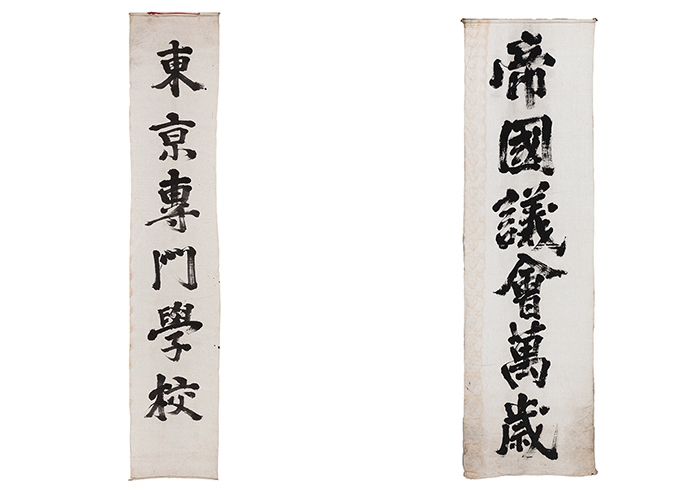 東京專門學校
帝國議會萬歲